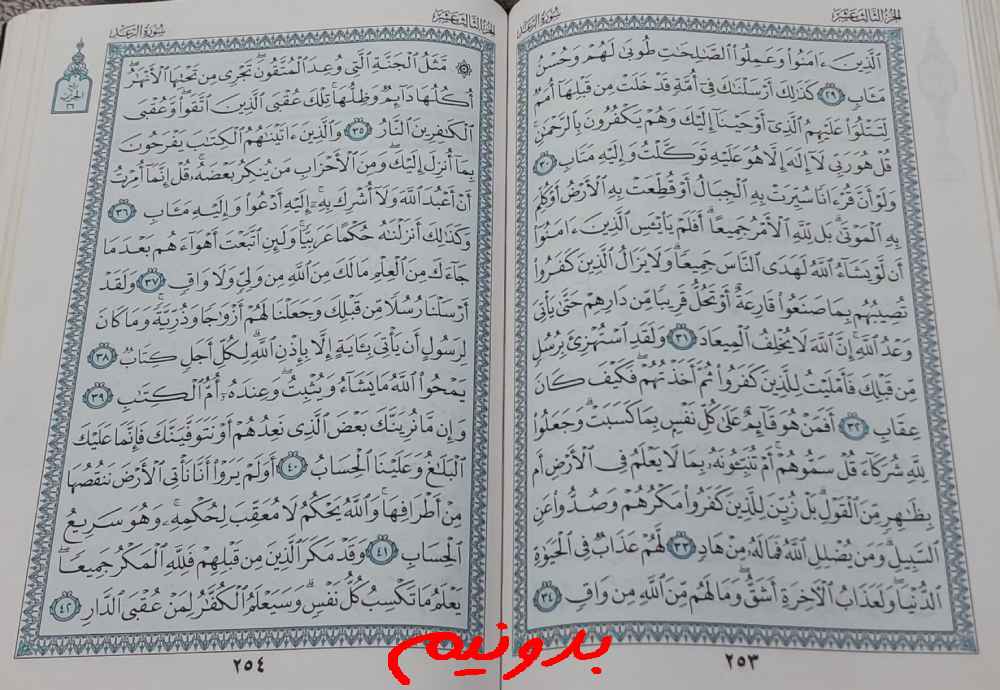 الجزء الثالث عشر
سورة الرعد
ٱلَّذِينَ ءَامَنُوا۟ وَعَمِلُوا۟ ٱلصَّـٰلِحَـٰتِ طُوبَىٰ لَهُمْ وَحُسْنُ
مَـَٔابٍ ٢٩ كَذَٰلِكَ أَرْسَلْنَـٰكَ فِىٓ أُمَّةٍ قَدْ خَلَتْ مِن قَبْلِهَآ أُمَمٌ
لِّتَتْلُوَا۟ عَلَيْهِمُ ٱلَّذِىٓ أَوْحَيْنَآ إِلَيْكَ وَهُمْ يَكْفُرُونَ بِٱلرَّحْمَـٰنِ
قُلْ هُوَ رَبِّى لَآ إِلَـٰهَ إِلَّا هُوَ عَلَيْهِ تَوَكَّلْتُ وَإِلَيْهِ مَتَابِ ٣٠
وَلَوْ أَنَّ قُرْءَانًا سُيِّرَتْ بِهِ ٱلْجِبَالُ أَوْ قُطِّعَتْ بِهِ ٱلْأَرْضُ أَوْ كُلِّمَ
بِهِ ٱلْمَوْتَىٰ بَل لِّلَّهِ ٱلْأَمْرُ جَمِيعًا أَفَلَمْ يَا۟يْـَٔسِ ٱلَّذِينَ ءَامَنُوٓا۟
أَن لَّوْ يَشَآءُ ٱللَّهُ لَهَدَى ٱلنَّاسَ جَمِيعًا وَلَا يَزَالُ ٱلَّذِينَ كَفَرُوا۟
تُصِيبُهُم بِمَا صَنَعُوا۟ قَارِعَةٌ أَوْ تَحُلُّ قَرِيبًا مِّن دَارِهِمْ حَتَّىٰ يَأْتِىَ
وَعْدُ ٱللَّهِ إِنَّ ٱللَّهَ لَا يُخْلِفُ ٱلْمِيعَادَ ٣١ وَلَقَدِ ٱسْتُهْزِئَ بِرُسُلٍ
مِّن قَبْلِكَ فَأَمْلَيْتُ لِلَّذِينَ كَفَرُوا۟ ثُمَّ أَخَذْتُهُمْ فَكَيْفَ كَانَ
عِقَابِ ٣٢ أَفَمَنْ هُوَ قَآئِمٌ عَلَىٰ كُلِّ نَفْسٍۭ بِمَا كَسَبَتْ وَجَعَلُوا۟
لِلَّهِ شُرَكَآءَ قُلْ سَمُّوهُمْ أَمْ تُنَبِّـُٔونَهُۥ بِمَا لَا يَعْلَمُ فِى ٱلْأَرْضِ أَم
بِظَـٰهِرٍ مِّنَ ٱلْقَوْلِ بَلْ زُيِّنَ لِلَّذِينَ كَفَرُوا۟ مَكْرُهُمْ وَصُدُّوا۟ عَنِ
ٱلسَّبِيلِ وَمَن يُضْلِلِ ٱللَّهُ فَمَا لَهُۥ مِنْ هَادٍ ٣٣ لَّهُمْ عَذَابٌ فِى ٱلْحَيَوٰةِ
ٱلدُّنْيَا وَلَعَذَابُ ٱلْـَٔاخِرَةِ أَشَقُّ وَمَا لَهُم مِّنَ ٱللَّهِ مِن وَاقٍ ٣٤
٢٥٣
الجزء الثالث عشر
سورة الرعد
۞ مَّثَلُ ٱلْجَنَّةِ ٱلَّتِى وُعِدَ ٱلْمُتَّقُونَ تَجْرِى مِن تَحْتِهَا ٱلْأَنْهَـٰرُ
أُكُلُهَا دَآئِمٌ وَظِلُّهَا تِلْكَ عُقْبَى ٱلَّذِينَ ٱتَّقَوا۟ وَّعُقْبَى
ٱلْكَـٰفِرِينَ ٱلنَّارُ ٣٥ وَٱلَّذِينَ ءَاتَيْنَـٰهُمُ ٱلْكِتَـٰبَ يَفْرَحُونَ
بِمَآ أُنزِلَ إِلَيْكَ وَمِنَ ٱلْأَحْزَابِ مَن يُنكِرُ بَعْضَهُۥ قُلْ إِنَّمَآ أُمِرْتُ
أَنْ أَعْبُدَ ٱللَّهَ وَلَآ أُشْرِكَ بِهِۦٓ إِلَيْهِ أَدْعُوا۟ وَإِلَيْهِ مَـَٔابِ ٣٦
وَكَذَٰلِكَ أَنزَلْنَـٰهُ حُكْمًا عَرَبِيًّا وَلَئِنِ ٱتَّبَعْتَ أَهْوَآءَهُم بَعْدَ مَا
جَآءَكَ مِنَ ٱلْعِلْمِ مَا لَكَ مِنَ ٱللَّهِ مِن وَلِىٍّ وَلَا وَاقٍ ٣٧ وَلَقَدْ
أَرْسَلْنَا رُسُلًا مِّن قَبْلِكَ وَجَعَلْنَا لَهُمْ أَزْوَٰجًا وَذُرِّيَّةً وَمَا كَانَ
لِرَسُولٍ أَن يَأْتِىَ بِـَٔايَةٍ إِلَّا بِإِذْنِ ٱللَّهِ لِكُلِّ أَجَلٍ كِتَابٌ ٣٨
يَمْحُوا۟ ٱللَّهُ مَا يَشَآءُ وَيُثْبِتُ وَعِندَهُۥٓ أُمُّ ٱلْكِتَـٰبِ ٣٩
وَإِن مَّا نُرِيَنَّكَ بَعْضَ ٱلَّذِى نَعِدُهُمْ أَوْ نَتَوَفَّيَنَّكَ فَإِنَّمَا عَلَيْكَ
ٱلْبَلَـٰغُ وَعَلَيْنَا ٱلْحِسَابُ ٤٠ أَوَلَمْ يَرَوْا۟ أَنَّا نَأْتِى ٱلْأَرْضَ نَنقُصُهَا
مِنْ أَطْرَافِهَا وَٱللَّهُ يَحْكُمُ لَا مُعَقِّبَ لِحُكْمِهِۦ وَهُوَ سَرِيعُ
ٱلْحِسَابِ ٤١ وَقَدْ مَكَرَ ٱلَّذِينَ مِن قَبْلِهِمْ فَلِلَّهِ ٱلْمَكْرُ جَمِيعًا
يَعْلَمُ مَا تَكْسِبُ كُلُّ نَفْسٍ وَسَيَعْلَمُ ٱلْكُفَّـٰرُ لِمَنْ عُقْبَى ٱلدَّارِ ٤٢
٢٥٤
بدونیم